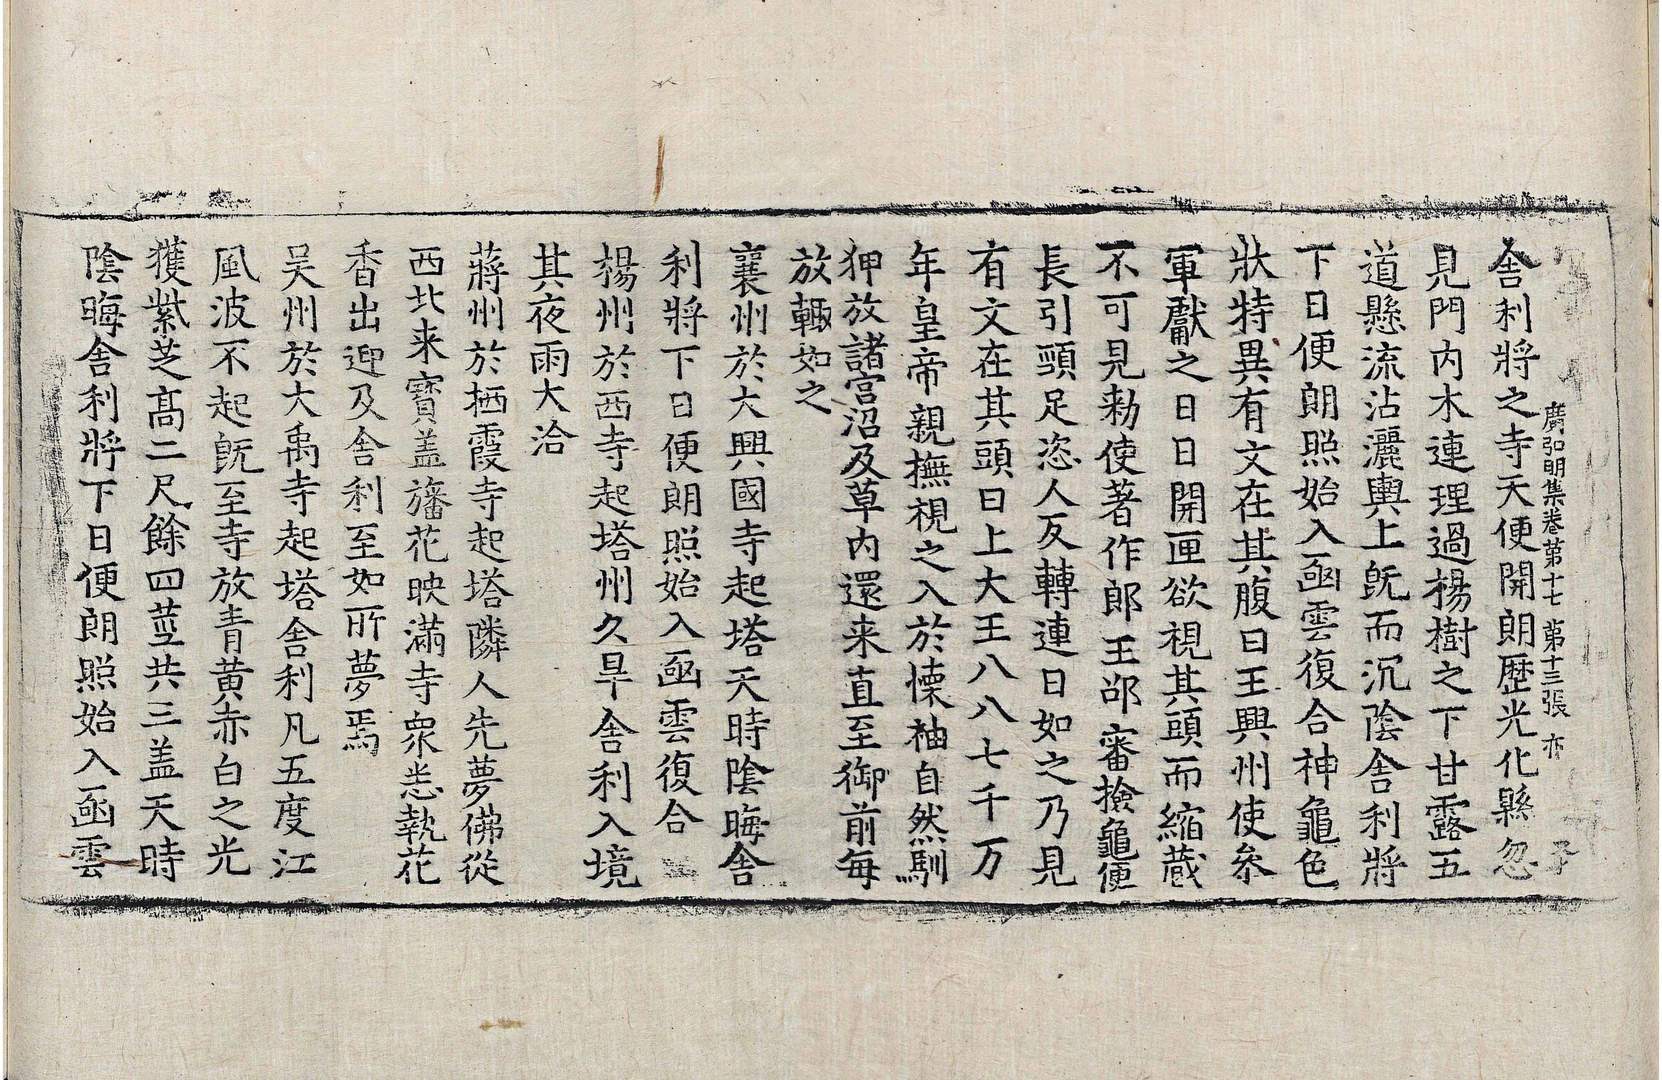 廣弘明集卷第十七 第十三張 亦
舎利將之寺天便開朗歷光化縣忽
見門內木連理過楊樹之下甘露五
道懸流沾灑輿上旣而沉陰舎利將
下日便朗照始入凾雲復合神龜色
狀特異有文在其腹曰王興州使叅
軍獻之日日開匣欲視其頭而縮蔵
不可見勑使著作郎王邵審撿龜便
長引頸足恣人反轉連日如之乃見
有文在其頭曰上大王八八七千万
年皇帝親撫視之入於懐袖自然馴
狎放諸宫沼及草內還来直至御前每
放輙如之
襄州於大興國寺起塔天時陰晦舎
利將下日便朗照始入凾雲復合
楊州於西寺起塔州久旱舎利入境
其夜雨大洽
蔣州於栖霞寺起塔隣人先夢佛從
西北来寳盖旛花映滿寺衆悉執花
香出迎及舎利至如所夢焉
吴州於大禹寺起塔舎利凡五度江
風波不起旣至寺放青黄赤白之光
獲紫芝髙二尺餘四莖共三盖天時
陰晦舎利將下日便朗照始入凾雲